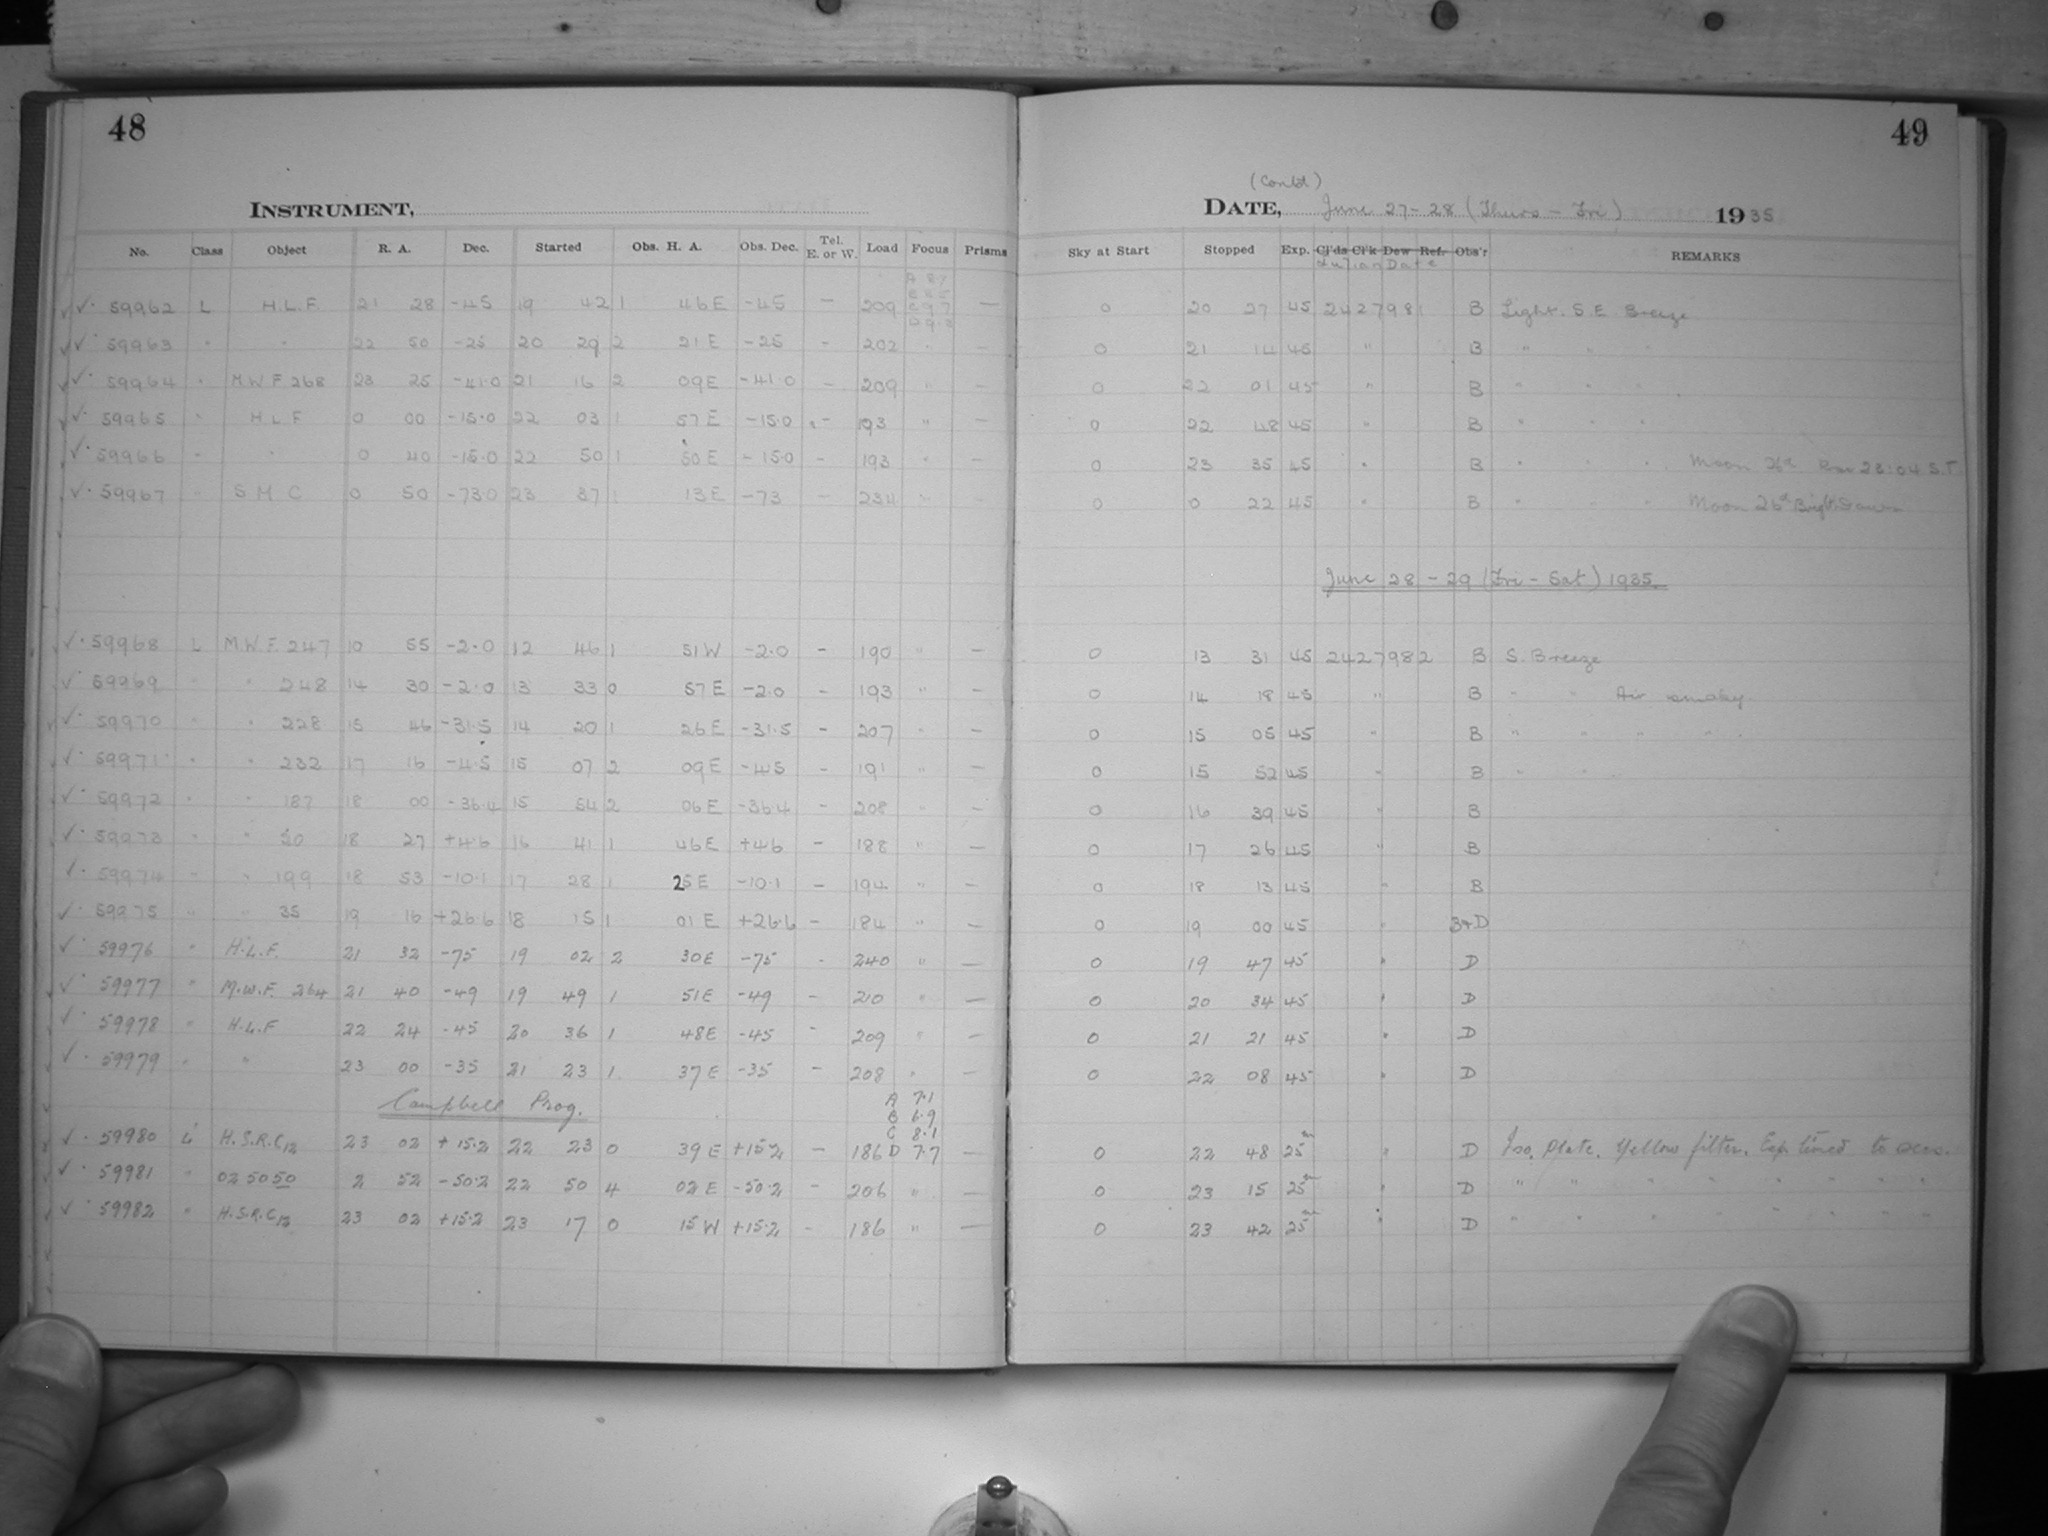 48
INSTRUMENT,
No. Class Object R. A. Dec. Started Obs. H. A. Obs. Dec. Tel. E. or W. Load Focus Prisms
✓· 59962 L H.L.F. 21 28 -45 19 42 1 46 E -45 — 209 —
✓· 59963 " " 22 50 -25 20 29 2 21 E -25 - 202 " —
✓· 59964 " M.W.F 268 23 25 -41.0 21 16 2 09E -41.0 - 209 " —
✓· 59965 " H.L.F 0 00 -15.0 22 03 1 57 E -15.0 - 193 " —
✓· 59966 " " 0 40 -15.0 22 50 1 50 E -15.0 - 193 " —
✓· 59967 " S M C 0 50 -73.0 23 37 1 13 E -73 - 234 " —
✓· 59968 L M.W.F. 247 10 55 -2.0 12 46 1 51 W -2.0 - 190 " —
✓· 59969 " " 248 14 30 -2.0 13 33 0 57 E -2.0 - 193 " —
✓· 59970 " " 228 15 46 -31.5 14 20 1 26 E -31.5 - 207 " —
✓· 59971 " " 232 17 16 -4.5 15 07 2 09 E -4.5 - 191 " —
✓· 59972 " " 187 18 00 -36.4 15 54 2 06 E -36.4 - 208 " —
✓· 59973 " " 50 18 27 +4.6 16 41 1 46 E +4.6 - 188 " —
✓· 59974 " " 199 18 53 -10.1 17 28 1 25 E -10.1 - 194 " —
✓· 59975 " " 35 19 16 +26.6 18 15 1 01 E +26.6 - 184 " —
✓· 59976 " H.L.F. 21 32 -75 19 02 2 30 E -75 - 240 " —
✓· 59977 " M.W.F. 264 21 40 -49 19 49 1 51 E -49 - 210 " —
✓· 59978 " H.L.F 22 24 -45 20 36 1 48 E -45 - 209 " —
✓· 59979 " " 23 00 -35 21 23 1 37 E -35 - 208 " —
Campbell Prog.
A 7.1
B 6.9
C 8.1
✓· 59980 L H.S.R.C12 23 02 +15.2 22 23 0 39 E +15.2 - 186 D 7.7 —
✓· 59981 " 025050 2 52 -50.2 22 50 4 02 E -50.2 - 206 " —
✓· 59982 " H.S.R.C12 23 02 +15.2 23 17 0 15 W +15.2 - 186 " —
49
(Contd)
DATE, June 27-28 (Thurs - Fri) 1935
Sky at Start Stopped Exp. Cl'ds Cl'k Dew Ref. Obs'r REMARKS
Julian Date
0 20 27 45 2427981 B Light. S.E Breeze
0 21 14 45 " B " " "
0 22 01 45 " B " " "
0 22 48 45 " B " " "
0 23 35 45 " B " " " Moon 26d 23:04 S.T
0 0 22 45 " B " " " Moon 26d Bright Dawn
June 28 - 29 (Fri - Sat) 1935
0 13 31 45 2427982 B S. Breeze
0 14 18 45 " B " " Air smoky
0 15 05 45 " B " " " "
0 15 52 45 " B " "
0 16 39 45 " B
0 17 26 45 " B
0 18 13 45 " B
0 19 00 45 " B+D
0 19 47 45 " D
0 20 34 45 " D
0 21 21 45 " D
0 22 08 45 " D
0 22 48 25m " D Iso. Plate. Yellow filter. Exp. timed to secs.
0 23 15 25m " D " " " " " " "
0 23 42 25m " D " " " " " " "